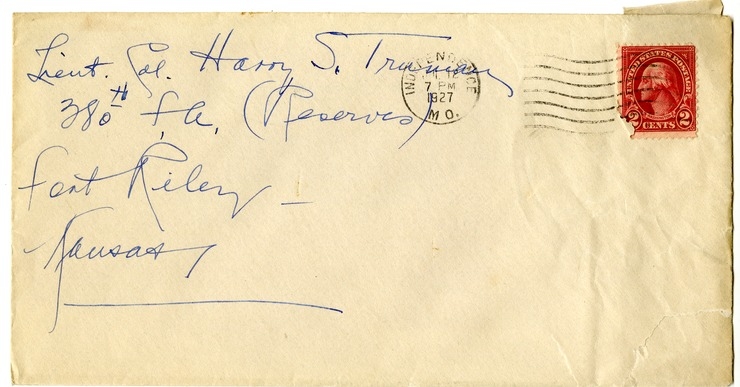 Lieut. Col. Harry S. Truman
380th F.A. (Reserves)
Fort Riley –
Kansas
INDEPENDENCE
12
7 PM
1927
MO.
UNITED STATES POSTAGE
2 CENTS 2